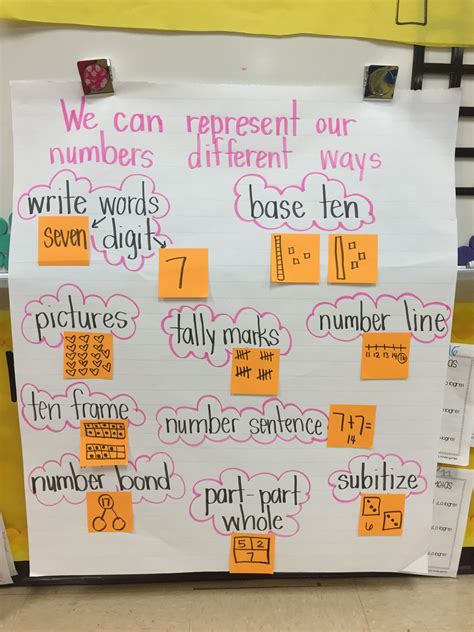 We can represent our
numbers different ways
write words
seven
digit
7
base ten
pictures
tally marks
number line
11 12 13 14 15
ten frame
number sentence
7+7=
14
number bond
17
part-part
whole
5 2
7
subitize
6